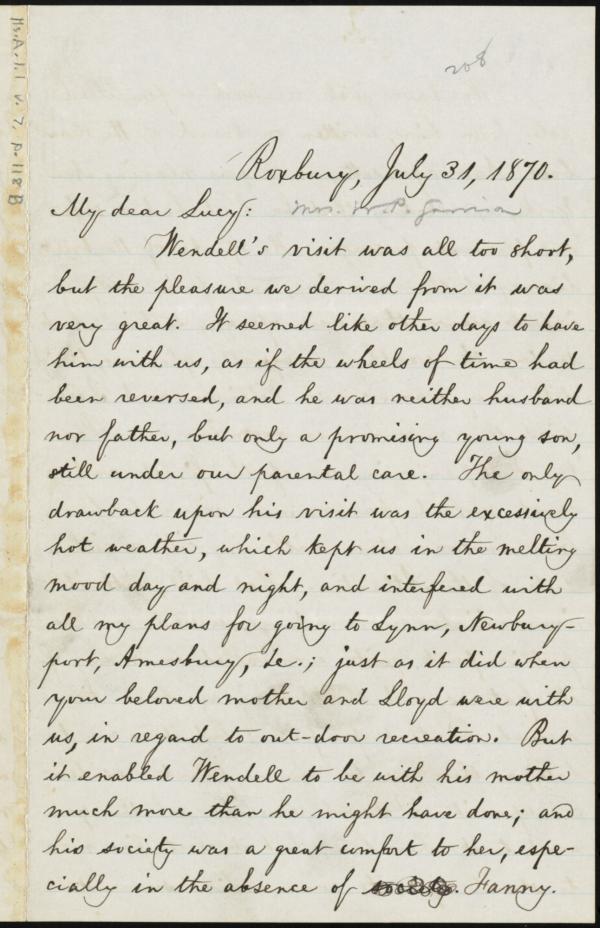 Ms.A.1.1 v.7, p.118B
208
Roxbury, July 31, 1870.
My dear Lucy: Mrs. W. P. Garrison
Wendell's visit was all too short,
but the pleasure we derived from it was
very great. It seemed like other days to have
him with us, as if the wheels of time had
been reversed, and he was neither husband
nor father, but only a promising young son,
still under our parental care. The only
drawback upon his visit was the excessively
hot weather, which kept us in the melting
mood day and night, and interfered with
all my plans for going to Lynn, Newbury-
port, Amesbury, &c.; just as it did when
your beloved mother and Lloyd were with
us, in regard to out-door recreation. But
it enabled Wendell to be with his mother
much more than he might have done; and
his society was a great comfort to her, espe-
cially in the absence of Fanny.